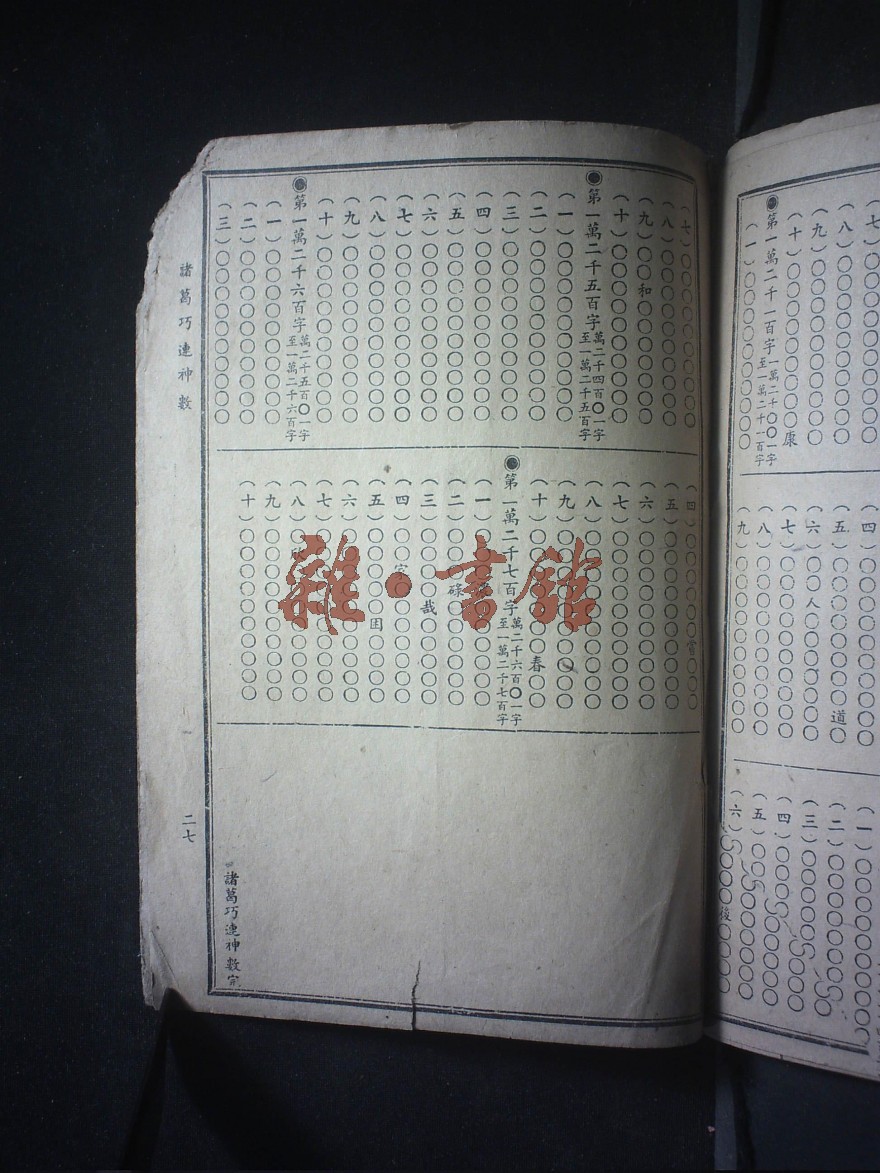 （七）
（八）
（九）
（十）康
第一萬二千一百字
一萬二千〇〇一字
至一萬二千一百字
（一）
（四）
（五）道
（六）人
（七）
（八）
（九）
（一）
（二）
（三）
（四）
（五）
（六）後
（七）
（八）
（九）和
（十）
第一萬二千五百字
萬二千四百〇一字
至一萬二千五百字
（一）
（二）
（三）
（四）
（五）
（六）
（七）
（八）
（九）
（十）
第一萬二千六百字
萬二千五百〇一字
至一萬二千六百字
（一）
（二）
（三）
（四）當
（五）
（六）
（七）
（八）
（九）
（十）春
第一萬二千七百字
萬二千六百〇一字
至一萬二千七百字
（一）
（二）碌
（三）哉
（四）字
（五）
（六）
（七）
（八）
（九）
（十）
諸葛巧連神數完
諸葛巧連神數
二七
雜·書館